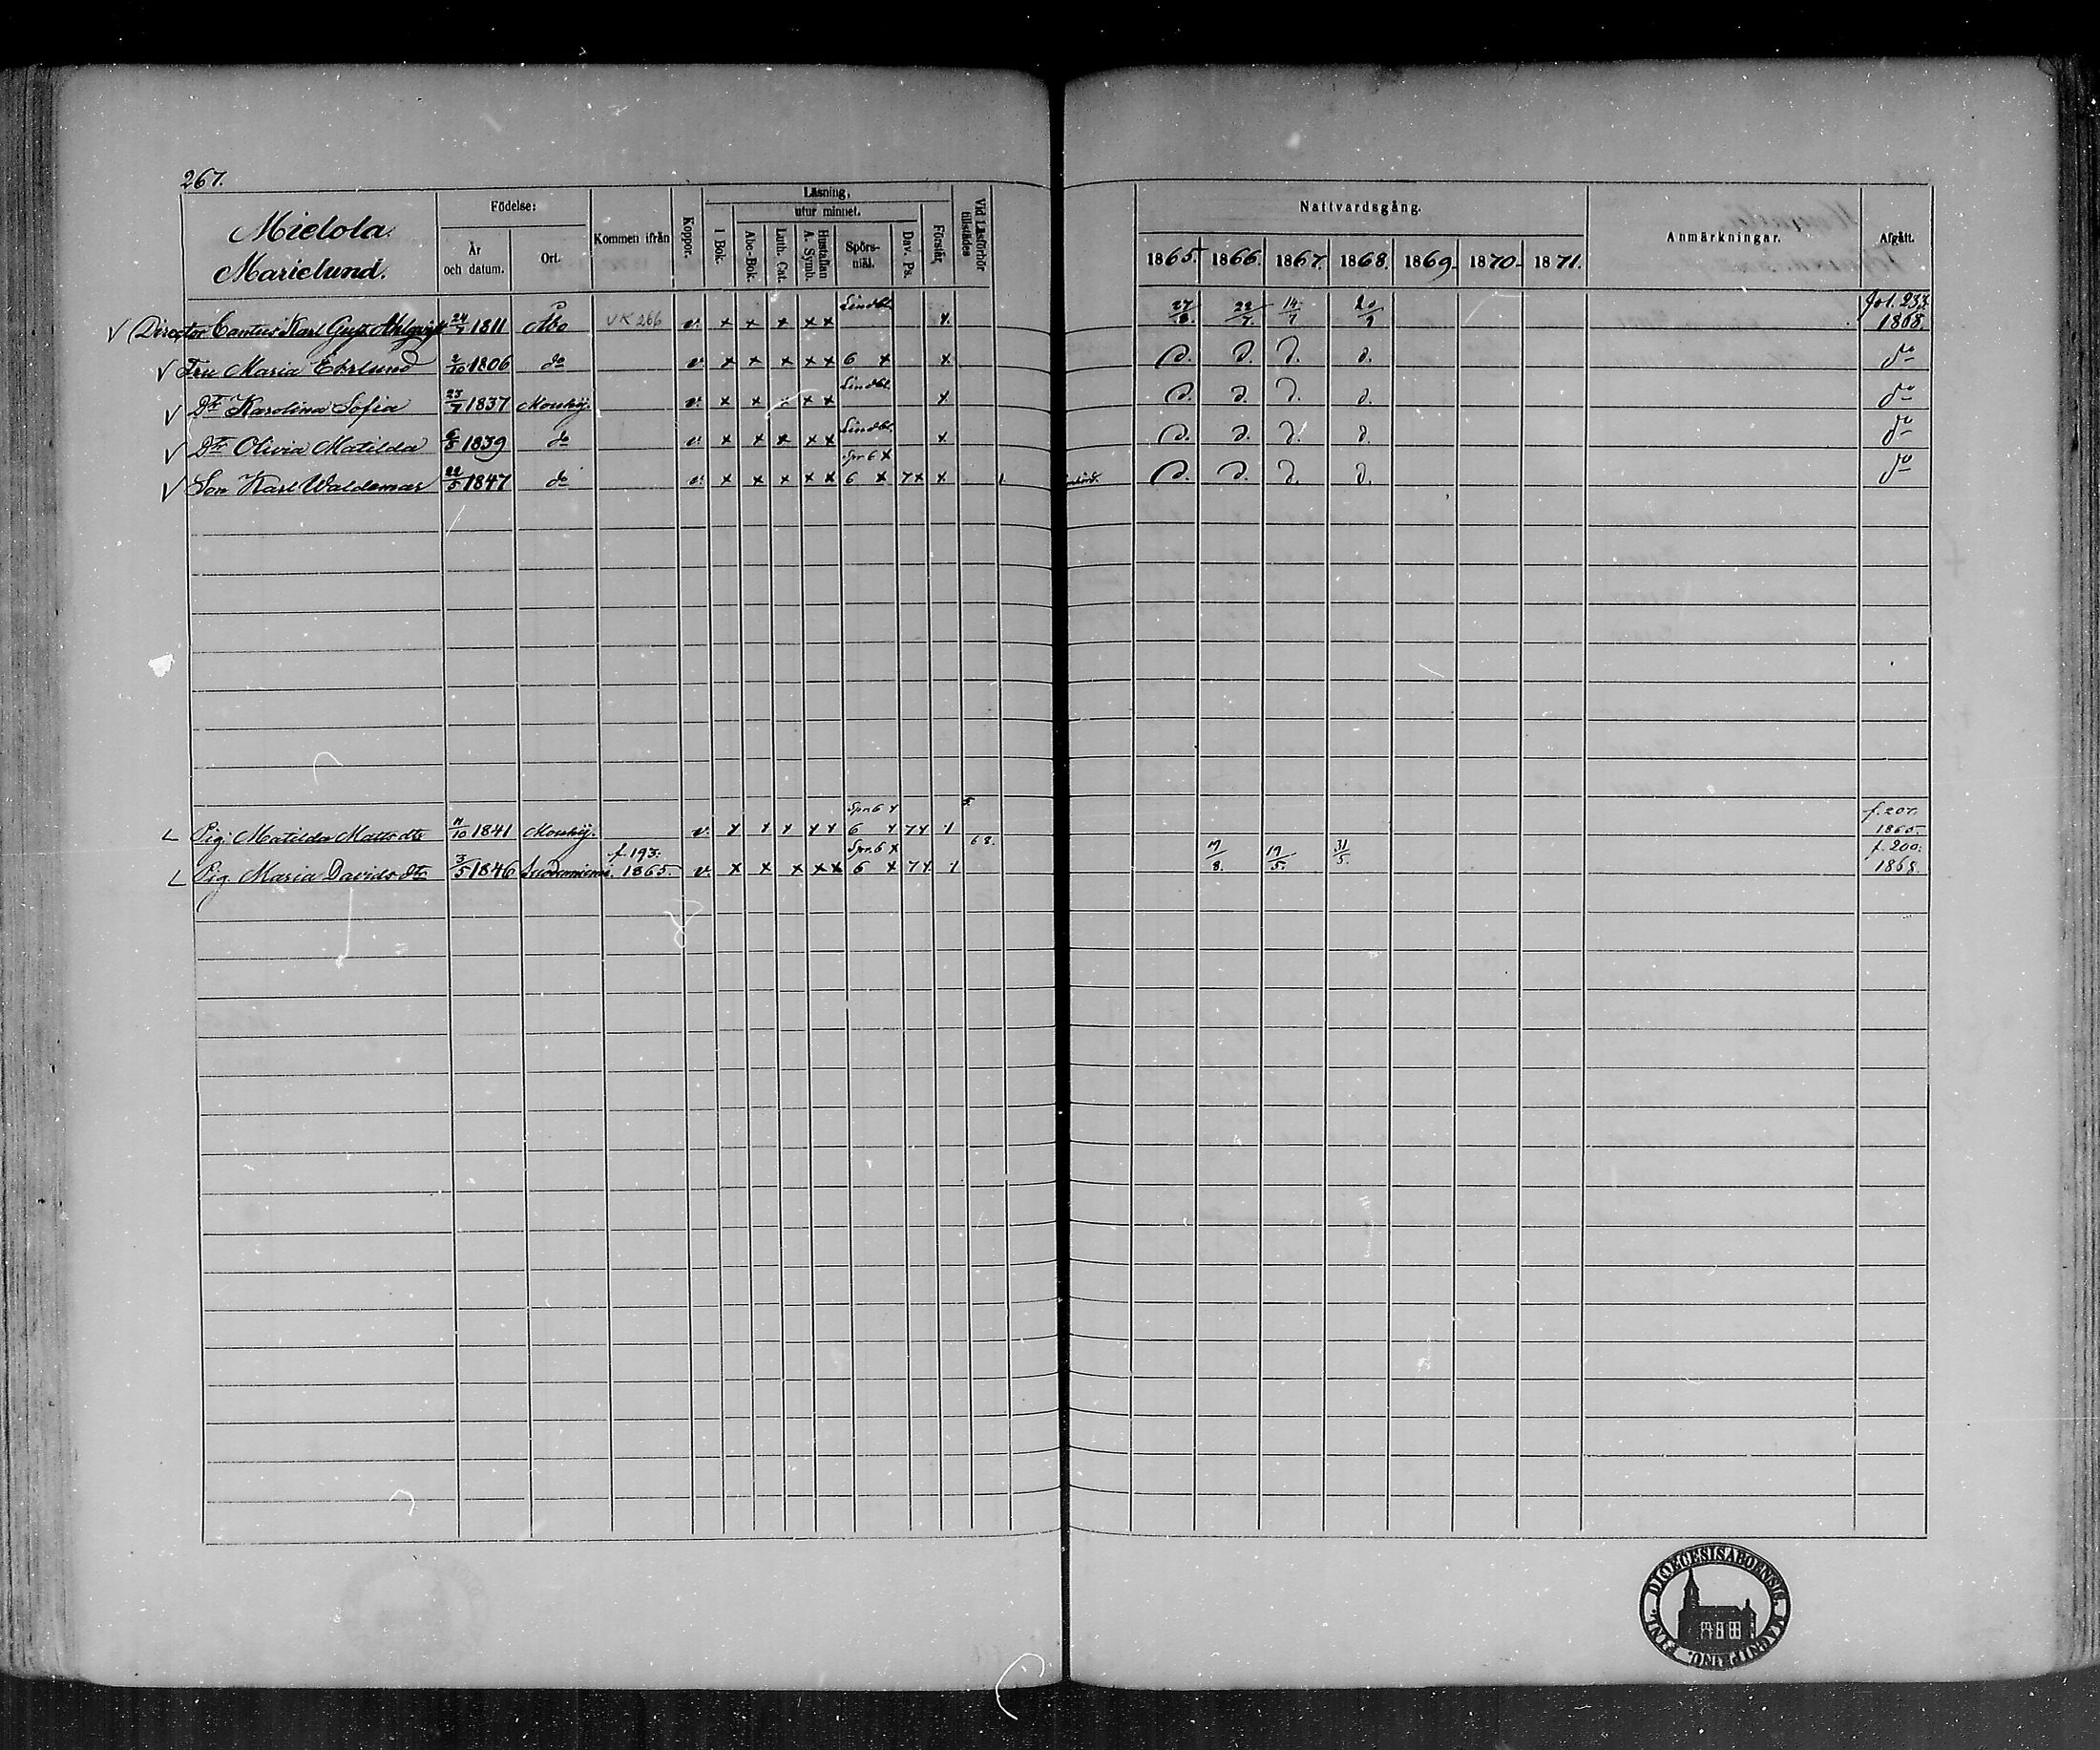 267.
Mielola.
Marielund.
Födelse:
År och datum.
Ort.
Kommen ifrån
Koppor.
Läsning,
utur minnet.
I Bok.
Abc-Bok.
Luth. Cat.
Hustaflan A. Symb.
Spörsmål.
Dav. Ps.
Förstår.
Vid Läsförhör tillstädes
Nattvardsgång.
1865. 1866. 1867. 1868. 1869. 1870. 1871.
Anmärkningar.
Afgått.
√ Director Cantus Karl Gust Ahlqvist 24/7 1811 Åbo VK 266 v. x x x x x Lindbl. x. 27/8. 22/7. 14/7 20/9 Fol. 233. 1868.
√ Fru Maria Ekrlund 2/10 1806 do v. x x x x x 6 x x D. D. D. D. do
√ Dr Karolina Sofia 25/7 1837 Mouhij. v. x x x x x Lindbl. x D. D. D. D. do
√ Dr Olivia Matilda 6/8 1839 do v. x x x x x Lindbl. x D. D. D. D. do
√ Son Karl Waldemar 22/5 1847 do v. x x x x x Spr 6 x 6 x 7x x D. D. D. D. do
Pig. Matilda Matts dtr 11/10 1841 Mouhij. v. x x x x x Spr. 6 x 6 x 7x x 5. f. 207. 1865.
Pig. Maria Davids dtr 3/5 1846 f. 193. 1865. v. x x x x x Spr. 6 x 6 x 7x. x 68. 19/8. 19/5. 31/5. f. 200. 1868.
FINL. DIOECESIS ABOENSIS. MAGNI PRINC.